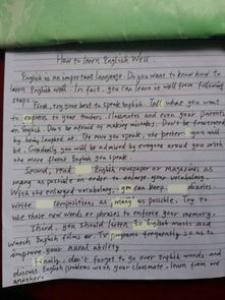 How to learn English Well
English is an important language. Do you want to know how to
learn English well. In fact, you can learn it well from following
steps.
First, try your best to speak English. Tell what you want
to express to your teachers, classmates and even your parents
in English. Don't be afraid of making mistakes. Don't be
by being laughed at. The more you speak, the better you will
be. Gradually, you will be admired by everyone around you with
the more fluent English you speak.
Second, read English newspaper or magazines as
many as possible in order to enlarge your vocabulary.
With the enlarged vocabulary, you can keep diaries
write compositions as many as possible. Try to
use these new words or phrases to enforce your memory.
Third, you should listen to English music and
watch English films or TV programs frequently so as to
improve your aural ability
Finally, don't forget to go over English words and
discuss English problems with your classmate, learn from one
another.